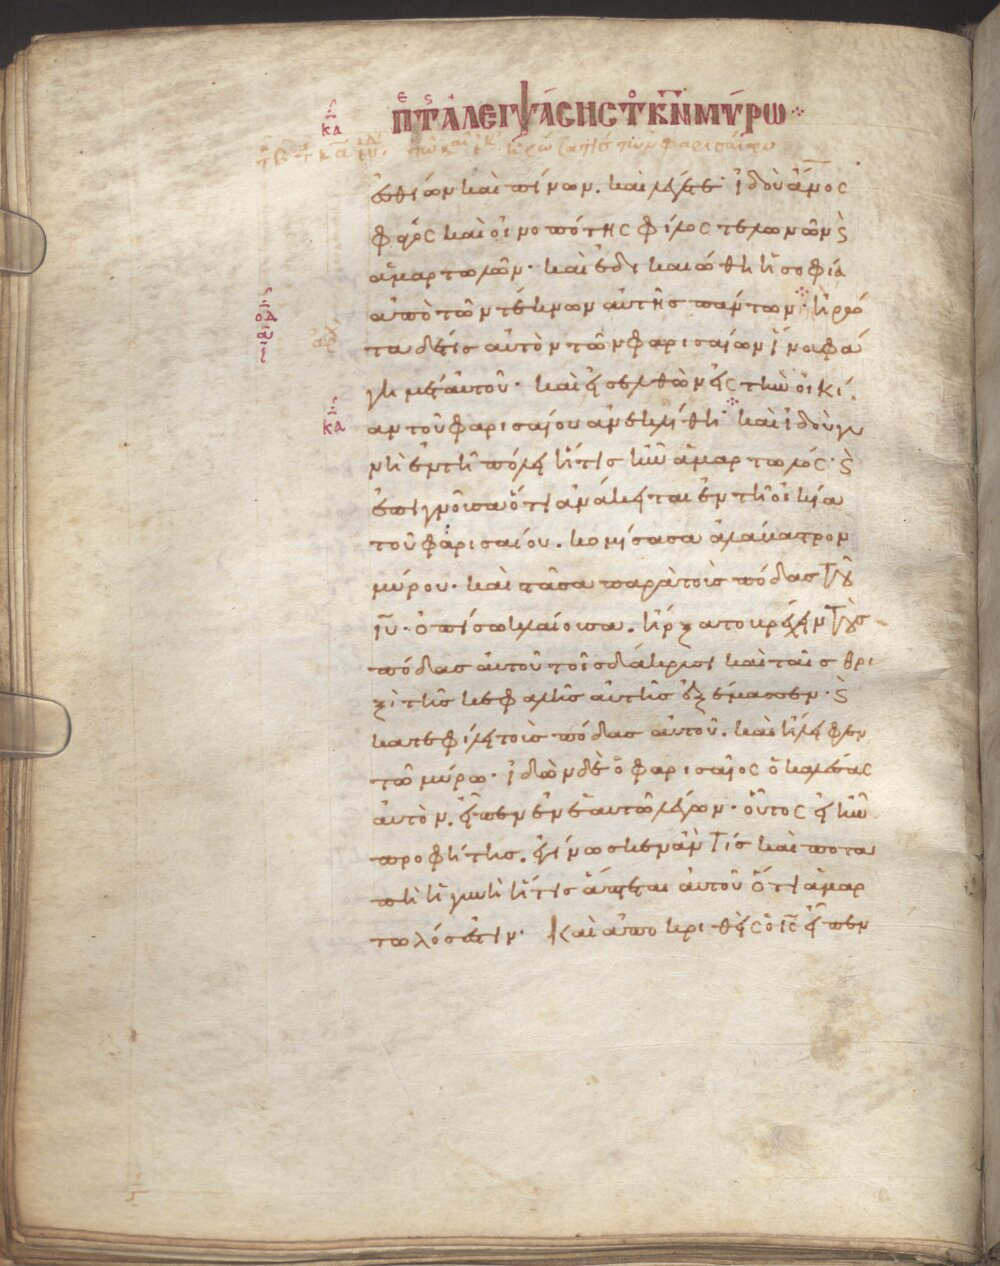 ΠΤ ἈΛΕΙΨΆΣΗΣ Τ ΚΝ ΜΎΡΩ
κα
ἐσθίων καὶ πίνων. καὶ λέγετε· ἰδοὺ ἄνος
φάγος καὶ οἰνοπότης φίλος τελωνῶν ϗ
ἁμαρτωλῶν· καὶ ἐδικαιώθη ἡ σοφία
ἀπὸ τῶν τέκνων αὐτῆς πάντων· ἠρώ
τα δέ τις αὐτὸν τῶν φαρισαίων ἵνα φά
γη μετ' αὐτοῦ· καὶ εἰσελθὼν εἰς τὴν οἰκί
αν τοῦ φαρισαίου ἀνεκλίθη· καὶ ἰδοὺ γυ
κα
νὴ ἐν τῆ πόλει ἥτις ἦν ἁμαρτωλός· ϗ
ἐπιγνοῦσα ὅτι ἀνάκειται ἐν τῆ οἰκία
τοῦ φαρισαίου. κομίσασα ἀλάβαστρον
μύρου· καὶ στᾶσα παρὰ τοὺς πόδας τοῦ
ιυ· ὀπίσω κλαίουσα. ἤρξατο βρέχειν τοὺς
πόδας αὐτοῦ τοῖς δάκρυσι καὶ ταῖς θρι
ξὶ τῆς κεφαλῆς αὐτῆς ἐξέμασσεν· ϗ
κατεφίλει τοὺς πόδας αὐτοῦ. καὶ ἤλειφεν
τῶ μύρω· ἰδὼν δὲ ὁ φαρισαῖος ὁ καλέσας
αὐτὸν. εἶπεν ἐν ἑαυτῶ λέγων· οὗτος εἰ ἦν
προφήτης. ἐγίνωσκεν ἂν τίς καὶ ποτα
πὴ ἡ γυνὴ ἥτις ἅπτεται αὐτοῦ ὅτι ἁμαρ
τωλός ἐστιν· Καὶ ἀποκριθεὶς ὁ ις εἶπεν